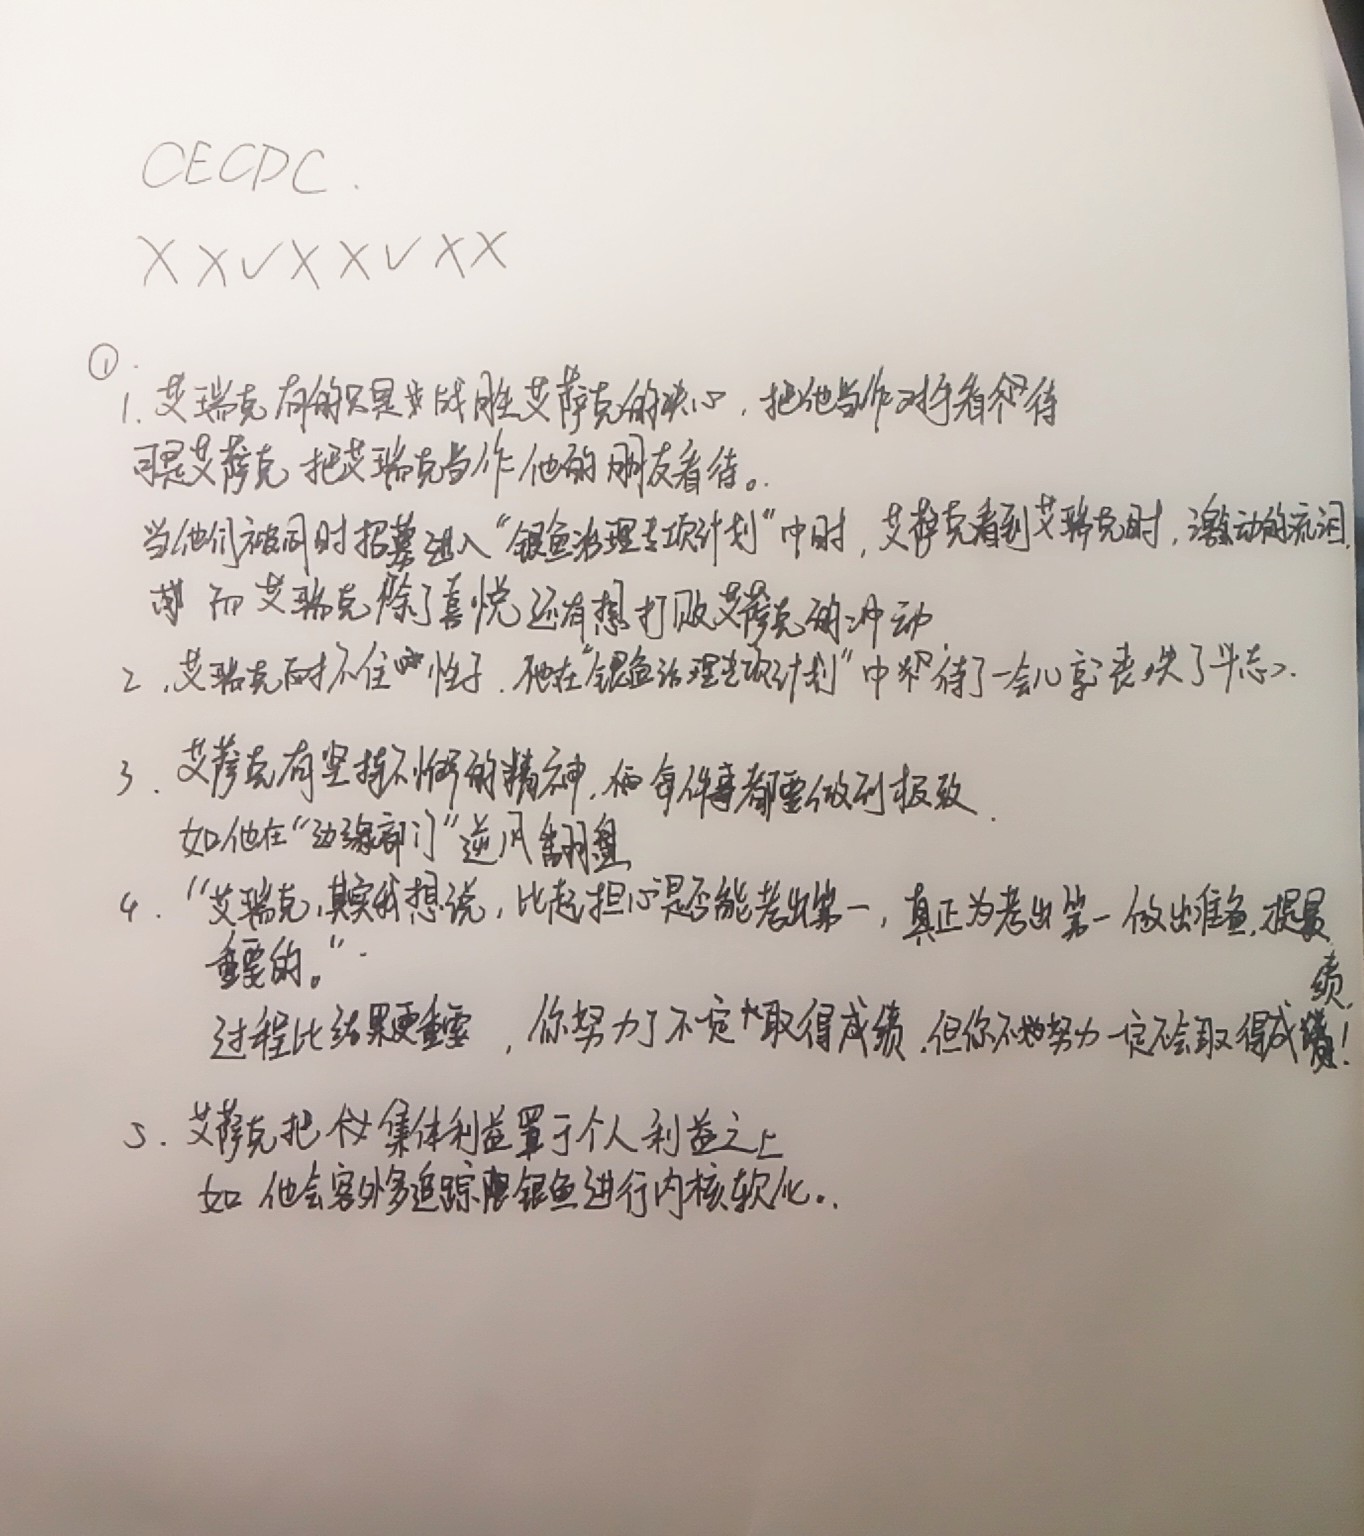 CECDC.
××✓××✓××
①.
1. 艾瑞克有的只是战胜艾萨克的决心，把他当作对手看待
可是艾萨克把艾瑞克当作他的朋友看待。
当他们被同时招募进入“银鱼治理专项计划”中时，艾萨克看到艾瑞克时，激动的流泪，
而艾瑞克除了喜悦还有想打败艾萨克的冲动
2. 艾瑞克耐不住性子．他在“银鱼治理专项计划”中待了一会儿就丧失了斗志．
3. 艾萨克有坚持不懈的精神，每件事都要做到极致．
如他在“边缘部门”逆风翻盘
4. “艾瑞克，其实我想说，比起担心是否能考出第一，真正为考出第一做出准备，才是最
重要的。”
过程比结果更重要，你努力了不一定取得成绩，但你不努力一定不会取得成绩！
5. 艾萨克把集体利益置于个人利益之上
如他会额外多追踪银鱼进行内核软化。